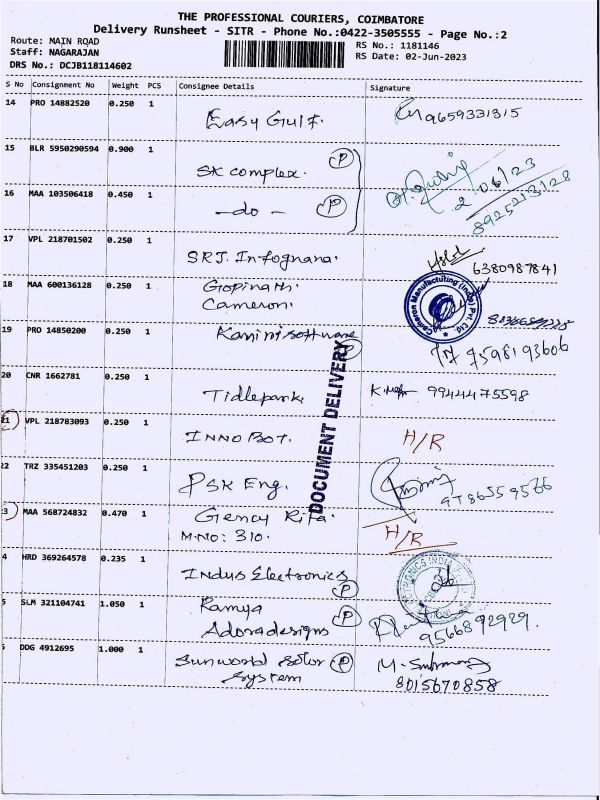 THE PROFESSIONAL COURIERS, COIMBATORE
Delivery Runsheet - SITR - Phone No.:0422-3505555 - Page No.:2
Route: MAIN ROAD
Staff: NAGARAJAN
DRS No.: DCJB118114602
RS No.: 1181146
RS Date: 02-Jun-2023
S No Consignment No Weight PCS Consignee Details Signature
14 PRO 14882520 0.250 1 Easy Gulf. 9659331315
15 BLR 5950290594 0.900 1 SK complex. P
2/06/23
8925213128
16 MAA 103506418 0.450 1 -do- P
17 VPL 218701502 0.250 1 SRJ. Infognana. 6380987841
18 MAA 600136128 0.250 1 Gopinath.
Cameron.
Cameron Manufacturing (India) Pvt. Ltd.
19 PRO 14850200 0.250 1 Kamini software P 7598193606
DOCUMENT DELIVERY
20 CNR 1662781 0.250 1 Tidlepark. 9944475598
21 VPL 218783093 0.250 1 INNO BOT. H/R
22 TRZ 335451203 0.250 1 PSK Eng.
3 MAA 568724832 0.470 1 Gency Rita. H/R
M.NO: 310.
4 HRD 369264578 0.235 1 Indus Electronics P
5 SLM 321104741 1.050 1 Ramya
Adoradesigns P 9566892929.
DDG 4912695 1.000 1 Sunworld Solar P
System 8015670858